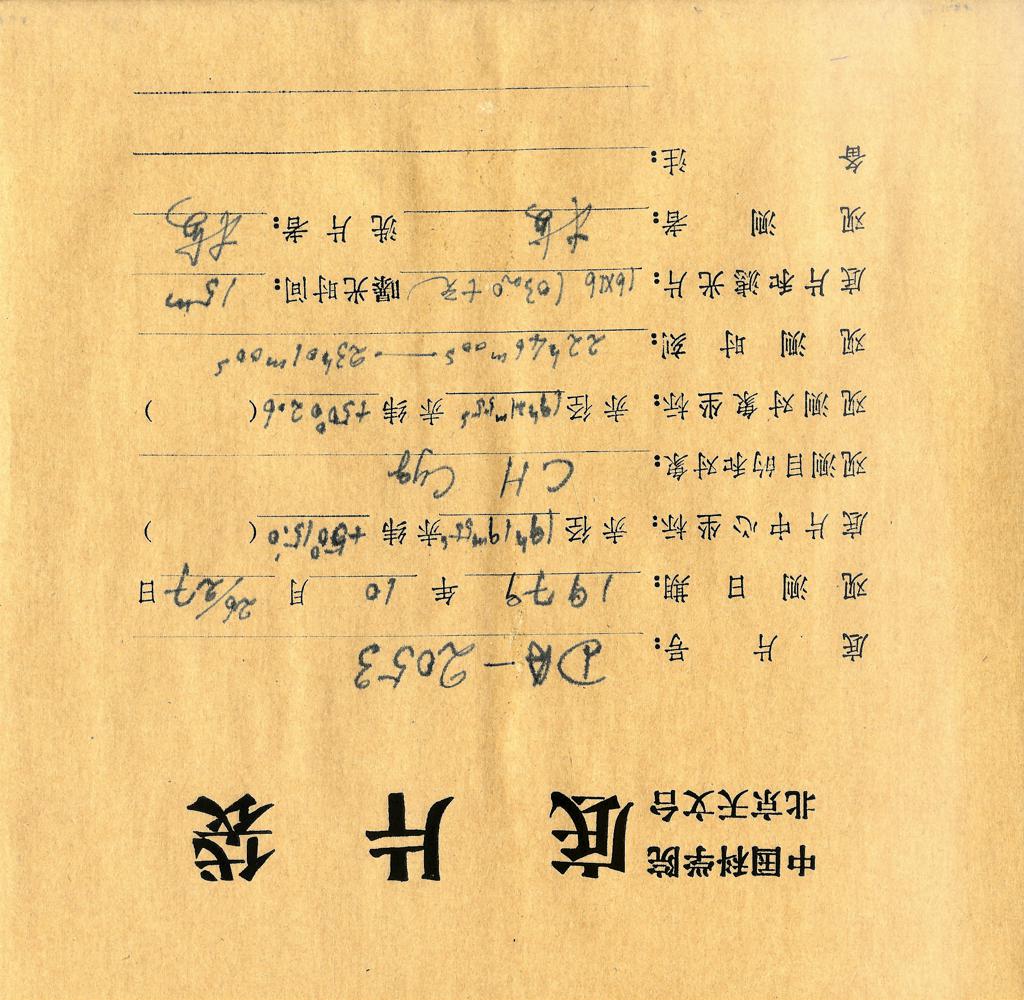 中国科学院
北京天文台 底片袋
底片号: DA-2053
观测日期: 1979年10月26/27日
底片中心坐标: 赤径19h19m55s赤纬+50°15.0′( )
观测目的和对象: CH Cyg
观测对象坐标: 赤径 赤纬+50°02.6( )
观测时刻: 22h46m00s——23h01m00s
底片和滤光片: 16X16 (03a.O+无) 曝光时间: 15m
观测者: 洗片者:
备注: